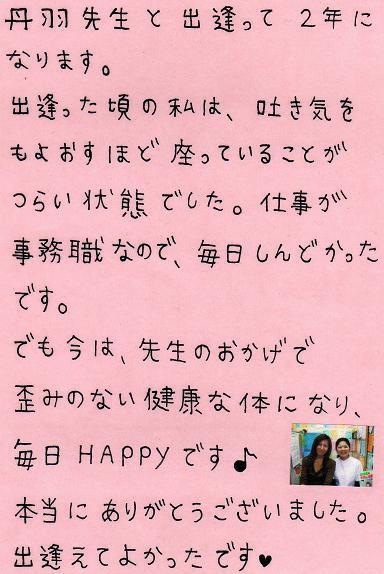 丹羽先生と出逢って2年に
なります。
出逢った頃の私は、吐き気を
もよおすほど座っていることが
つらい状態でした。仕事が
事務職なので、毎日しんどかった
です。
でも今は、先生のおかげで
歪みのない健康な体になり、
毎日HAPPYです♪
本当にありがとうございました。
出逢えてよかったです♥